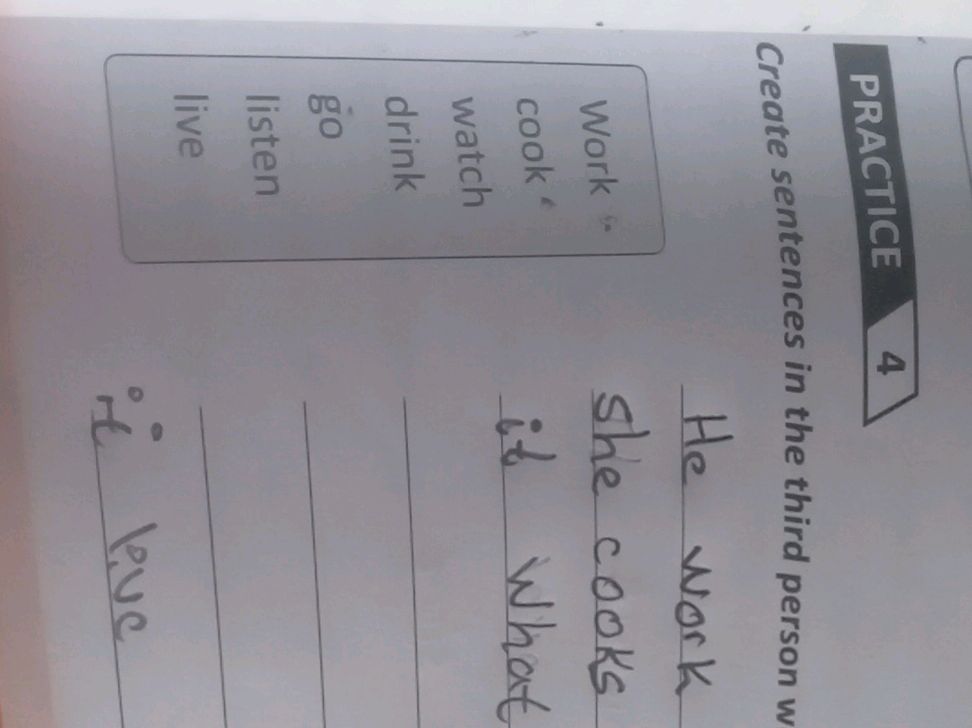 PRACTICE 4
Create sentences in the third person w
Work
cook
watch
drink
go
listen
live
He work
she cooks
it what
it live